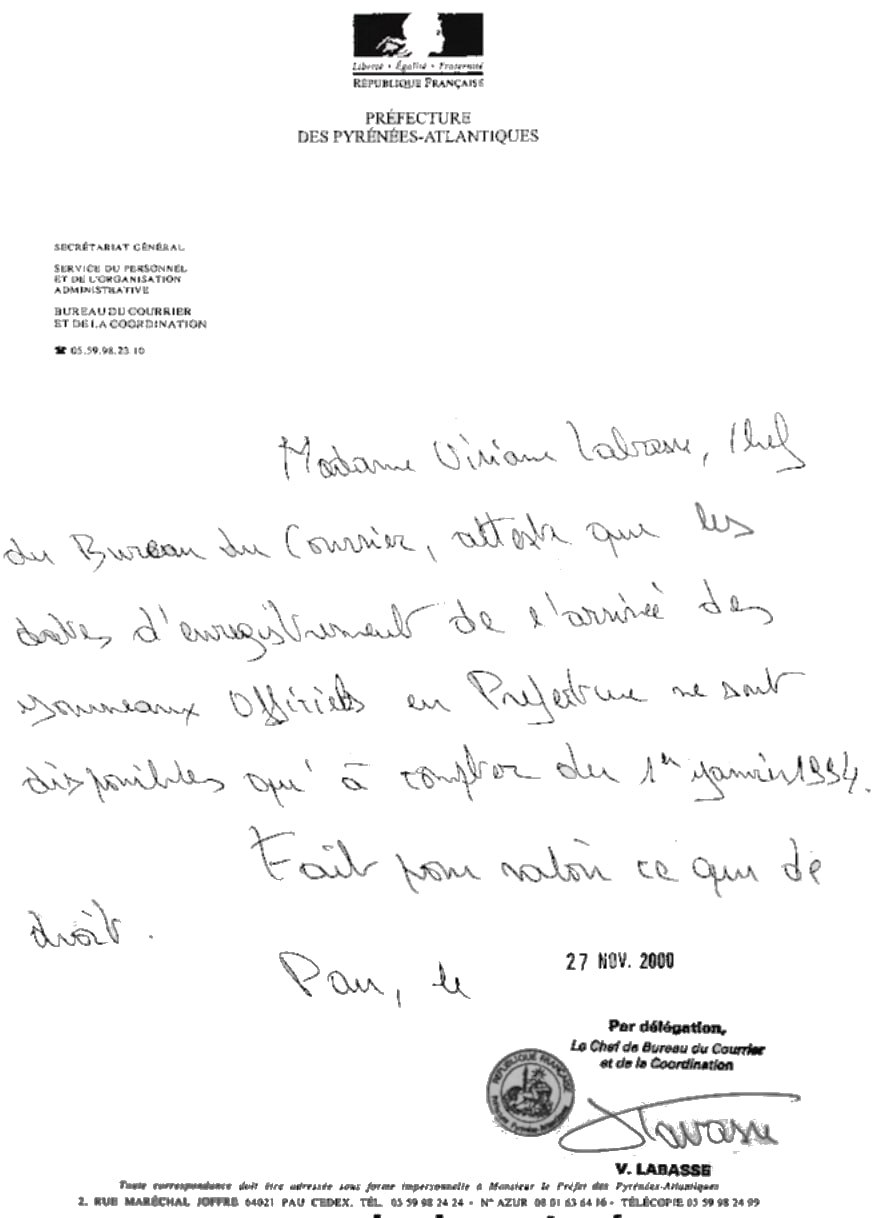 Liberté • Égalité • Fraternité
RÉPUBLIQUE FRANÇAISE
PRÉFECTURE
DES PYRÉNÉES-ATLANTIQUES
SECRÉTARIAT GÉNÉRAL
SERVICE DU PERSONNEL
ET DE L'ORGANISATION
ADMINISTRATIVE
BUREAU DU COURRIER
ET DE LA COORDINATION
☎ 05.59.98.23 10
Madame Viviane Labasse, Chef
du Bureau du Courrier, atteste que les
dates d'enregistrement de l'arrivée des
Journeaux Officiels en Préfecture ne sont
disponibles qu'à compter du 1er janvier 1994.
Fait pour valoir ce que de
droit.
Pau, le 27 NOV. 2000
Par délégation,
Le Chef de Bureau du Courrier
et de la Coordination
RÉPUBLIQUE FRANÇAISE
Pyrénées-Atlantiques
V. LABASSE
Toute correspondance doit être adressée sous forme impersonnelle à Monsieur le Préfet des Pyrénées-Atlantiques
2, RUE MARÉCHAL JOFFRE 64021 PAU CEDEX. TÉL. 05 59 98 24 24 - N° AZUR 08 01 63 64 16 - TÉLÉCOPIE 05 59 98 24 99